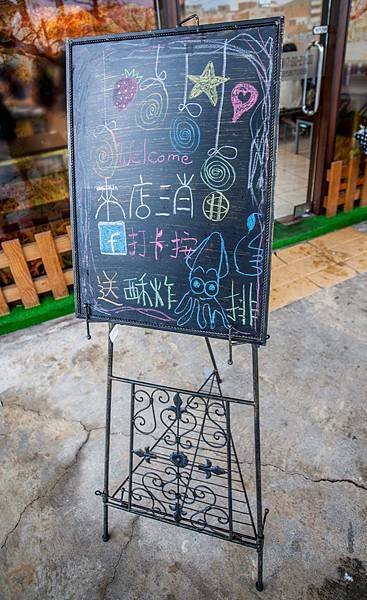 Welcome
來店消
f打卡按
送酥炸 排